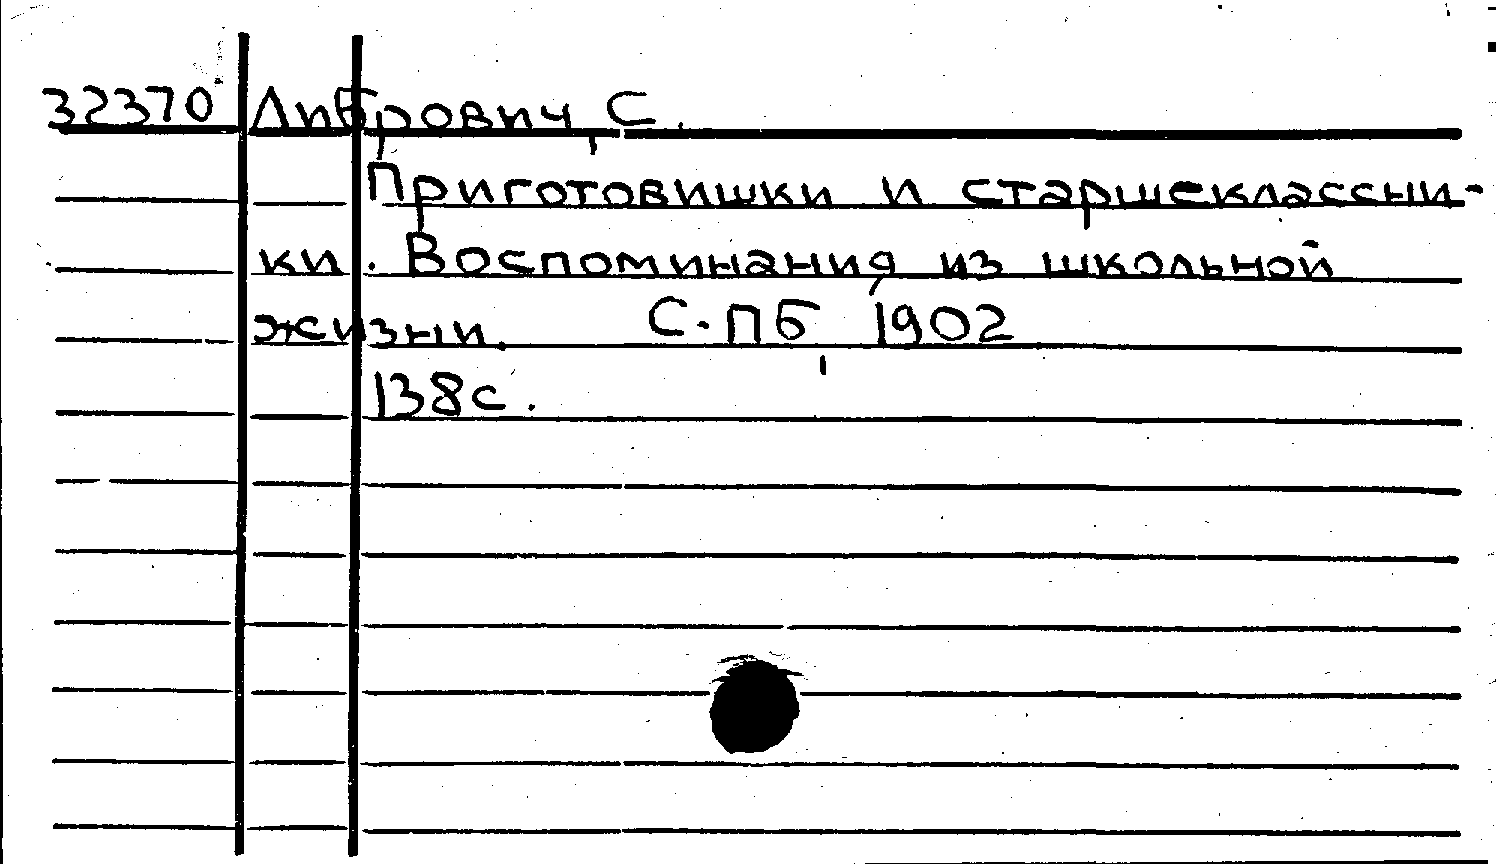 32370 Либрович, С.
Приготовишки и старшеклассни-
ки. Воспоминания из школьной
жизни. С.Пб, 1902
138с.